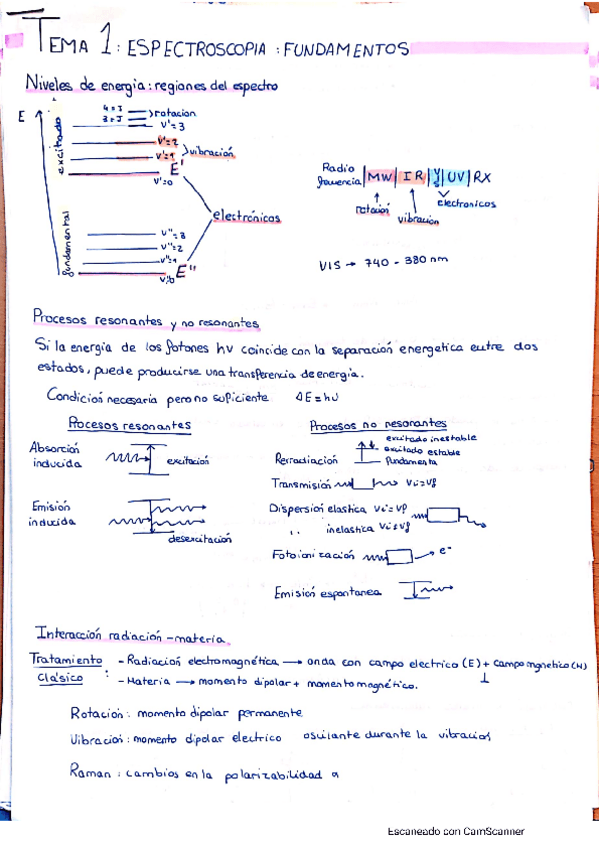 TEMA 1: ESPECTROSCOPIA: FUNDAMENTOS
Niveles de energia: regiones del espectro
E
excitado
4=J
3=J
rotacion
v'=3
v'=2
v'=1
vibración
E'
v'=0
electrónicas
fundamental
v''=3
v''=2
v''=1
E''
v''=0
Radio frecuencia | MW | IR | VIS | UV | RX
rotación
vibracion
electronicos
VIS → 740 - 380 nm
Procesos resonantes y no resonantes
Si la energia de los fotones hν coincide con la separación energetica entre dos
estados, puede producirse una transferencia de energia.
Condicion necesaria pero no suficiente ΔE=hν
Procesos resonantes
Absorción inducida
excitación
Emisión inducida
desexcitación
Procesos no resonantes
Rerradiación
excitado inestable
excitado estable
fundamenta
Transmisión νi=νf
Dispersion elastica νi=νf
" inelastica νi≠νf
Fotoionización e-
Emisión espontanea
Interacción radiación-materia
Tratamiento Clásico:
- Radiacion electromagnética → onda con campo electrico (E) + campo mgnetico (H)
⊥
- Materia → momento dipolar + momento magnético.
Rotacion: momento dipolar permanente
Vibracion: momento dipolar electrico oscilante durante la vibracion
Raman: cambios en la polarizabilidad α
Escaneado con CamScanner